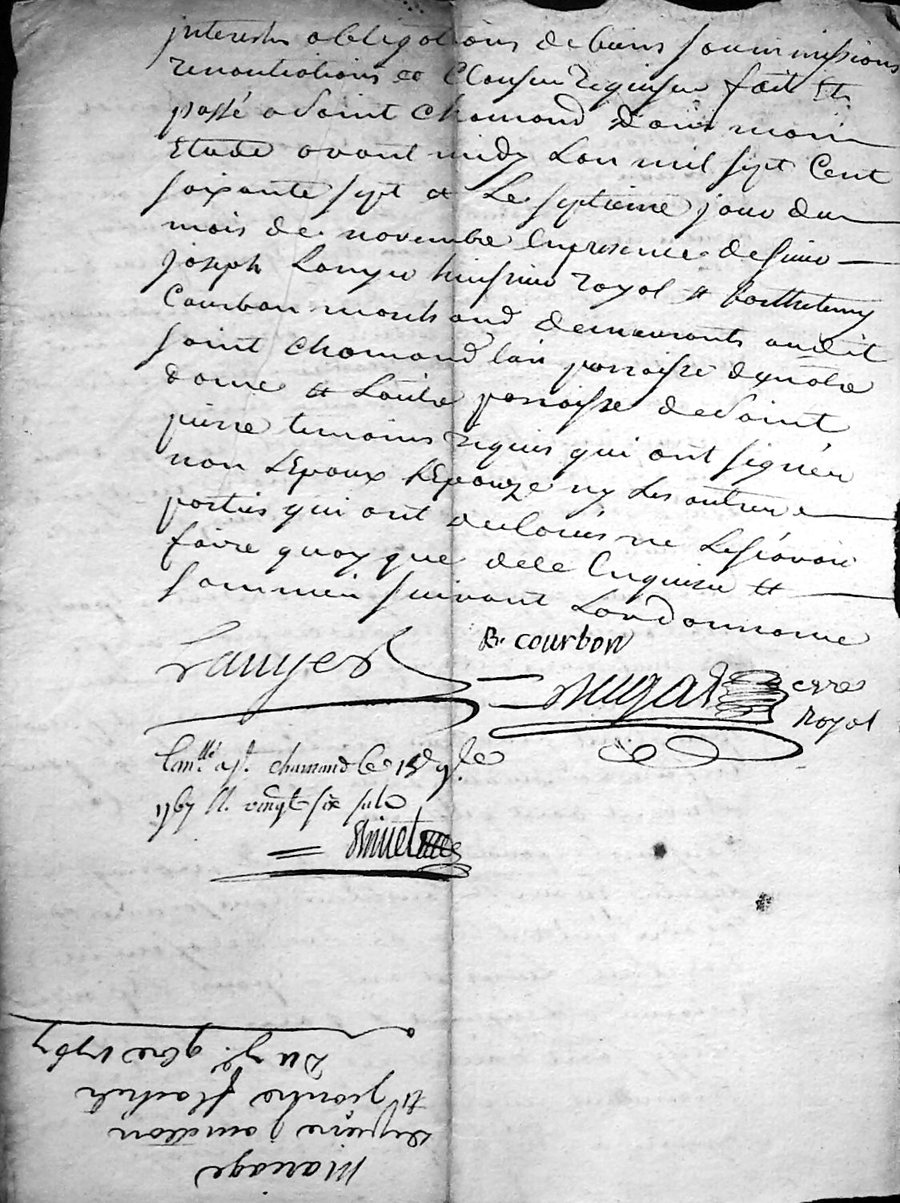 interests obligations de biens soumissions
renontiations et Clauses requises fait Et
passé a Saint chamond dans mon
Etude avant midy Lan mil sept Cent
soixante sept et Le septieme jour du
mois de novembre En presence de sieur
joseph huissier royal et barthelemy
Courbon marchand demeurants audit
saint chamond lun parroisse de notre
dame et Lautre parroisse de Saint
pierre temoins requis qui ont signés
non LEpoux LEpouze ny Les autres
parties qui ont declarés ne Lesçavoir
faire quoy que de ce Enquises et
sommés suivant Lordonnance
B. courbon
Dugas nre
Royal
Con.llé a St. chamond le 15e 9bre
1767 R. vingt six sols
Mariage
de pierre
et flachat
Du 7e. 9bre 1767